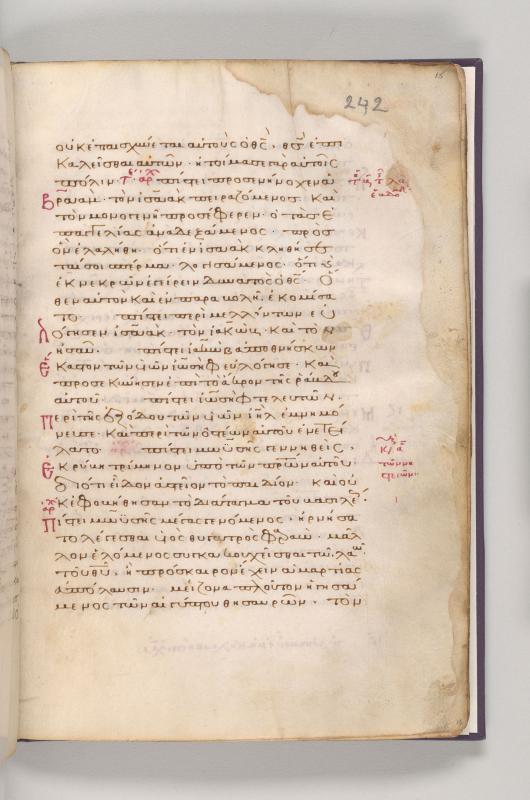 242
οὐκ ἐπαισχύνεται αὐτοὺς ὁ θς̅, θς̅ ἐπι
καλεῖσθαι αὐτῶν· ἡτοίμασε γὰρ αὐτοῖς
πόλιν· πίστει προσενήνοχεν Ἀ
βραὰμ τὸν ἰσαὰκ πειραζόμενος· καὶ
τὸν μονογενῆ προσέφερεν ὁ τὰς ἐ
παγγελίας ἀναδεξάμενος· πρὸς
ὃν ἐλαλήθη· ὅτι ἐν ἰσαὰκ κληθήσε
ταί σοι σπέρμα· λογισάμενος· ὅτι
ἐκ νεκρῶν ἐγείρειν δυνατὸς ὁ θς̅· ὅ
θεν αὐτὸν καὶ ἐν παραβολῇ ἐκομίσα
το· πίστει περὶ μελλόντων εὐ
λόγησεν ἰσαὰκ τὸν ἰακὼβ καὶ τὸν
ἡσαῦ· πίστει ἰακὼβ ἀποθνήσκων
ἕκαστον τῶν υἱῶν ἰωσὴφ εὐλόγησε· καὶ
προσεκύνησεν ἐπὶ τὸ ἄκρον τῆς ῥάβδου
αὐτοῦ· πίστει ἰωσὴφ τελευτῶν
περὶ τῆς ἐξόδου τῶν υἱῶν ιη̅λ ἐμνημό
νευσε· καὶ περὶ τῶν ὀστέων αὐτοῦ ἐνετεί
λατο· πίστει μωϋσῆς γεννηθεὶς
ἐκρύβη τρίμηνον ὑπὸ τῶν πρων̅ αὐτοῦ·
διότι εἶδον ἀστεῖον τὸ παιδίον· καὶ οὐ
κ ἐφοβήθησαν τὸ διάταγμα τοῦ βασιλέως·
πίστει μωϋσῆς μέγας γενόμενος ἠρνήσα
το λέγεσθαι υἱὸς θυγατρὸς φαραώ· μᾶλ
λον ἑλόμενος συγκακουχεῖσθαι τῷ λαῷ
τοῦ θυ̅, ἢ πρόσκαιρον ἔχειν ἁμαρτίας
ἀπόλαυσιν· μείζονα πλοῦτον ἡγησά
μενος τῶν αἰγύπτου θησαυρῶν· τὸν